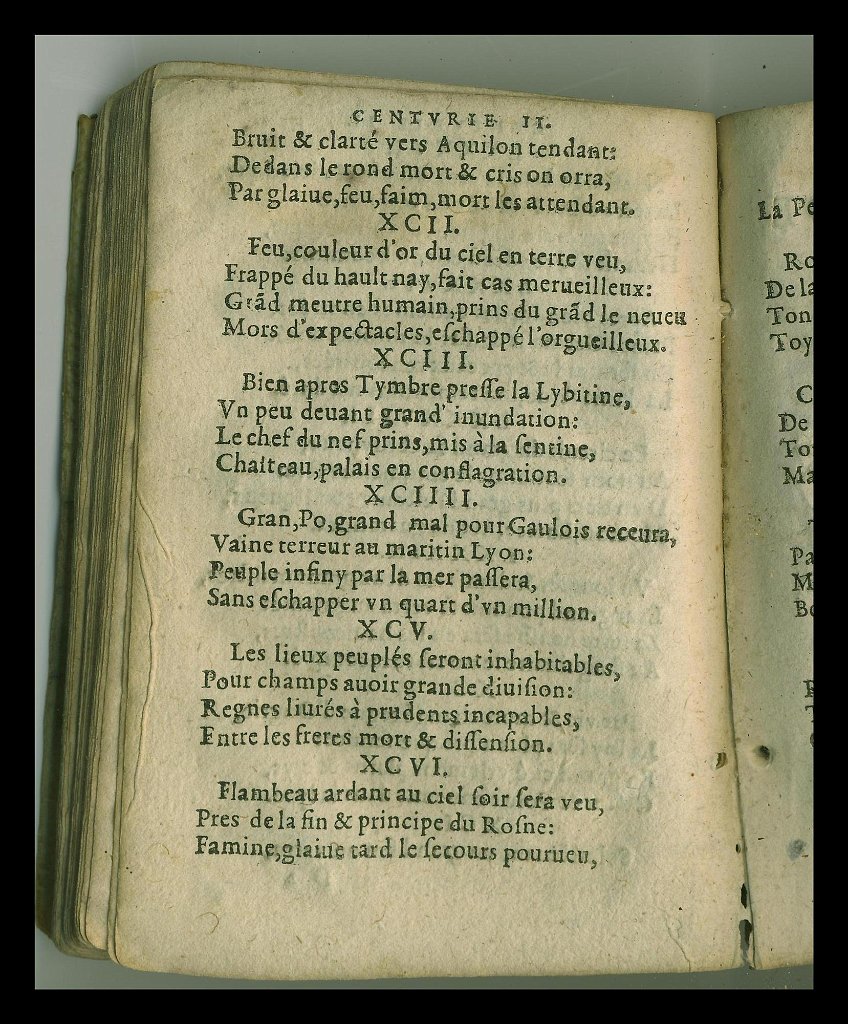 CENTVRIE II.
Bruit & clarté vers Aquilon tendant:
Dedans le rond mort & cris on orra,
Par glaiue,feu,faim,mort les attendant.
XCII.
Feu,couleur d'or du ciel en terre veu,
Frappé du hault nay,fait cas merueilleux:
Grãd meutre humain,prins du grãd le neueu
Mors d'expectacles,eſchappé l'orgueilleux.
XCIII.
Bien apres Tymbre preſſe la Lybitine,
Vn peu deuant grand' inundation:
Le chef du nef prins,mis à la ſentine,
Chaſteau,palais en conflagration.
XCIIII.
Gran,Po,grand mal pour Gaulois receura,
Vaine terreur au maritin Lyon:
Peuple infiny par la mer paſſera,
Sans eſchapper vn quart d'vn million.
XCV.
Les lieux peuplés ſeront inhabitables,
Pour champs auoir grande diuiſion:
Regnes liurés à prudents incapables,
Entre les freres mort & diſſenſion.
XCVI.
Flambeau ardant au ciel ſoir ſera veu,
Pres de la fin & principe du Roſne:
Famine,glaiue tard le ſecours pourueu,
La Pe
Ro
De la
Ton
Toy
C
De
To
Ma
Pa
M
Bo